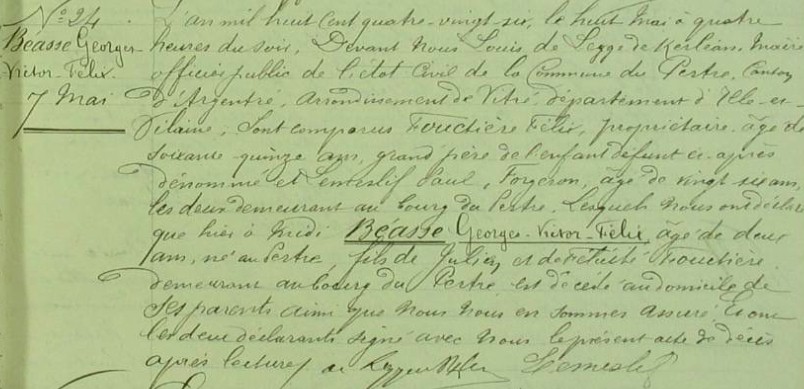 N° 24
Béasse Georges
Victor-Félix
7 Mai
L'an mil huit cent quatre-vingt-six, le huit Mai à quatre
heures du soir, Devant Nous Louis de Legge de Kerléan, Maire
officier public de l'état Civil de la Commune du Pertre, Canton
d'Argentré, Arrondissement de Vitré, département d'Ille-et-
Vilaine, sont comparus Fouctière Félix, propriétaire, âgé de
soixante quinze ans, grand père de l'enfant défunt ci-après
dénommé et Lemeslif Paul, Forgeron, âgé de vingt six ans,
les deux demeurant au bourg du Pertre, Lesquels Nous ont déclaré
que hier à Midi Béasse Georges-Victor-Félix, âgé de deux
ans, né au Pertre fils de Julien et de Félicité Fouctière
demeurant au bourg du Pertre est décédé au domicile de
ses parents ainsi que Nous Nous en sommes assuré. Et ont
les deux déclarants signé avec Nous le présent acte de décès
après lecture